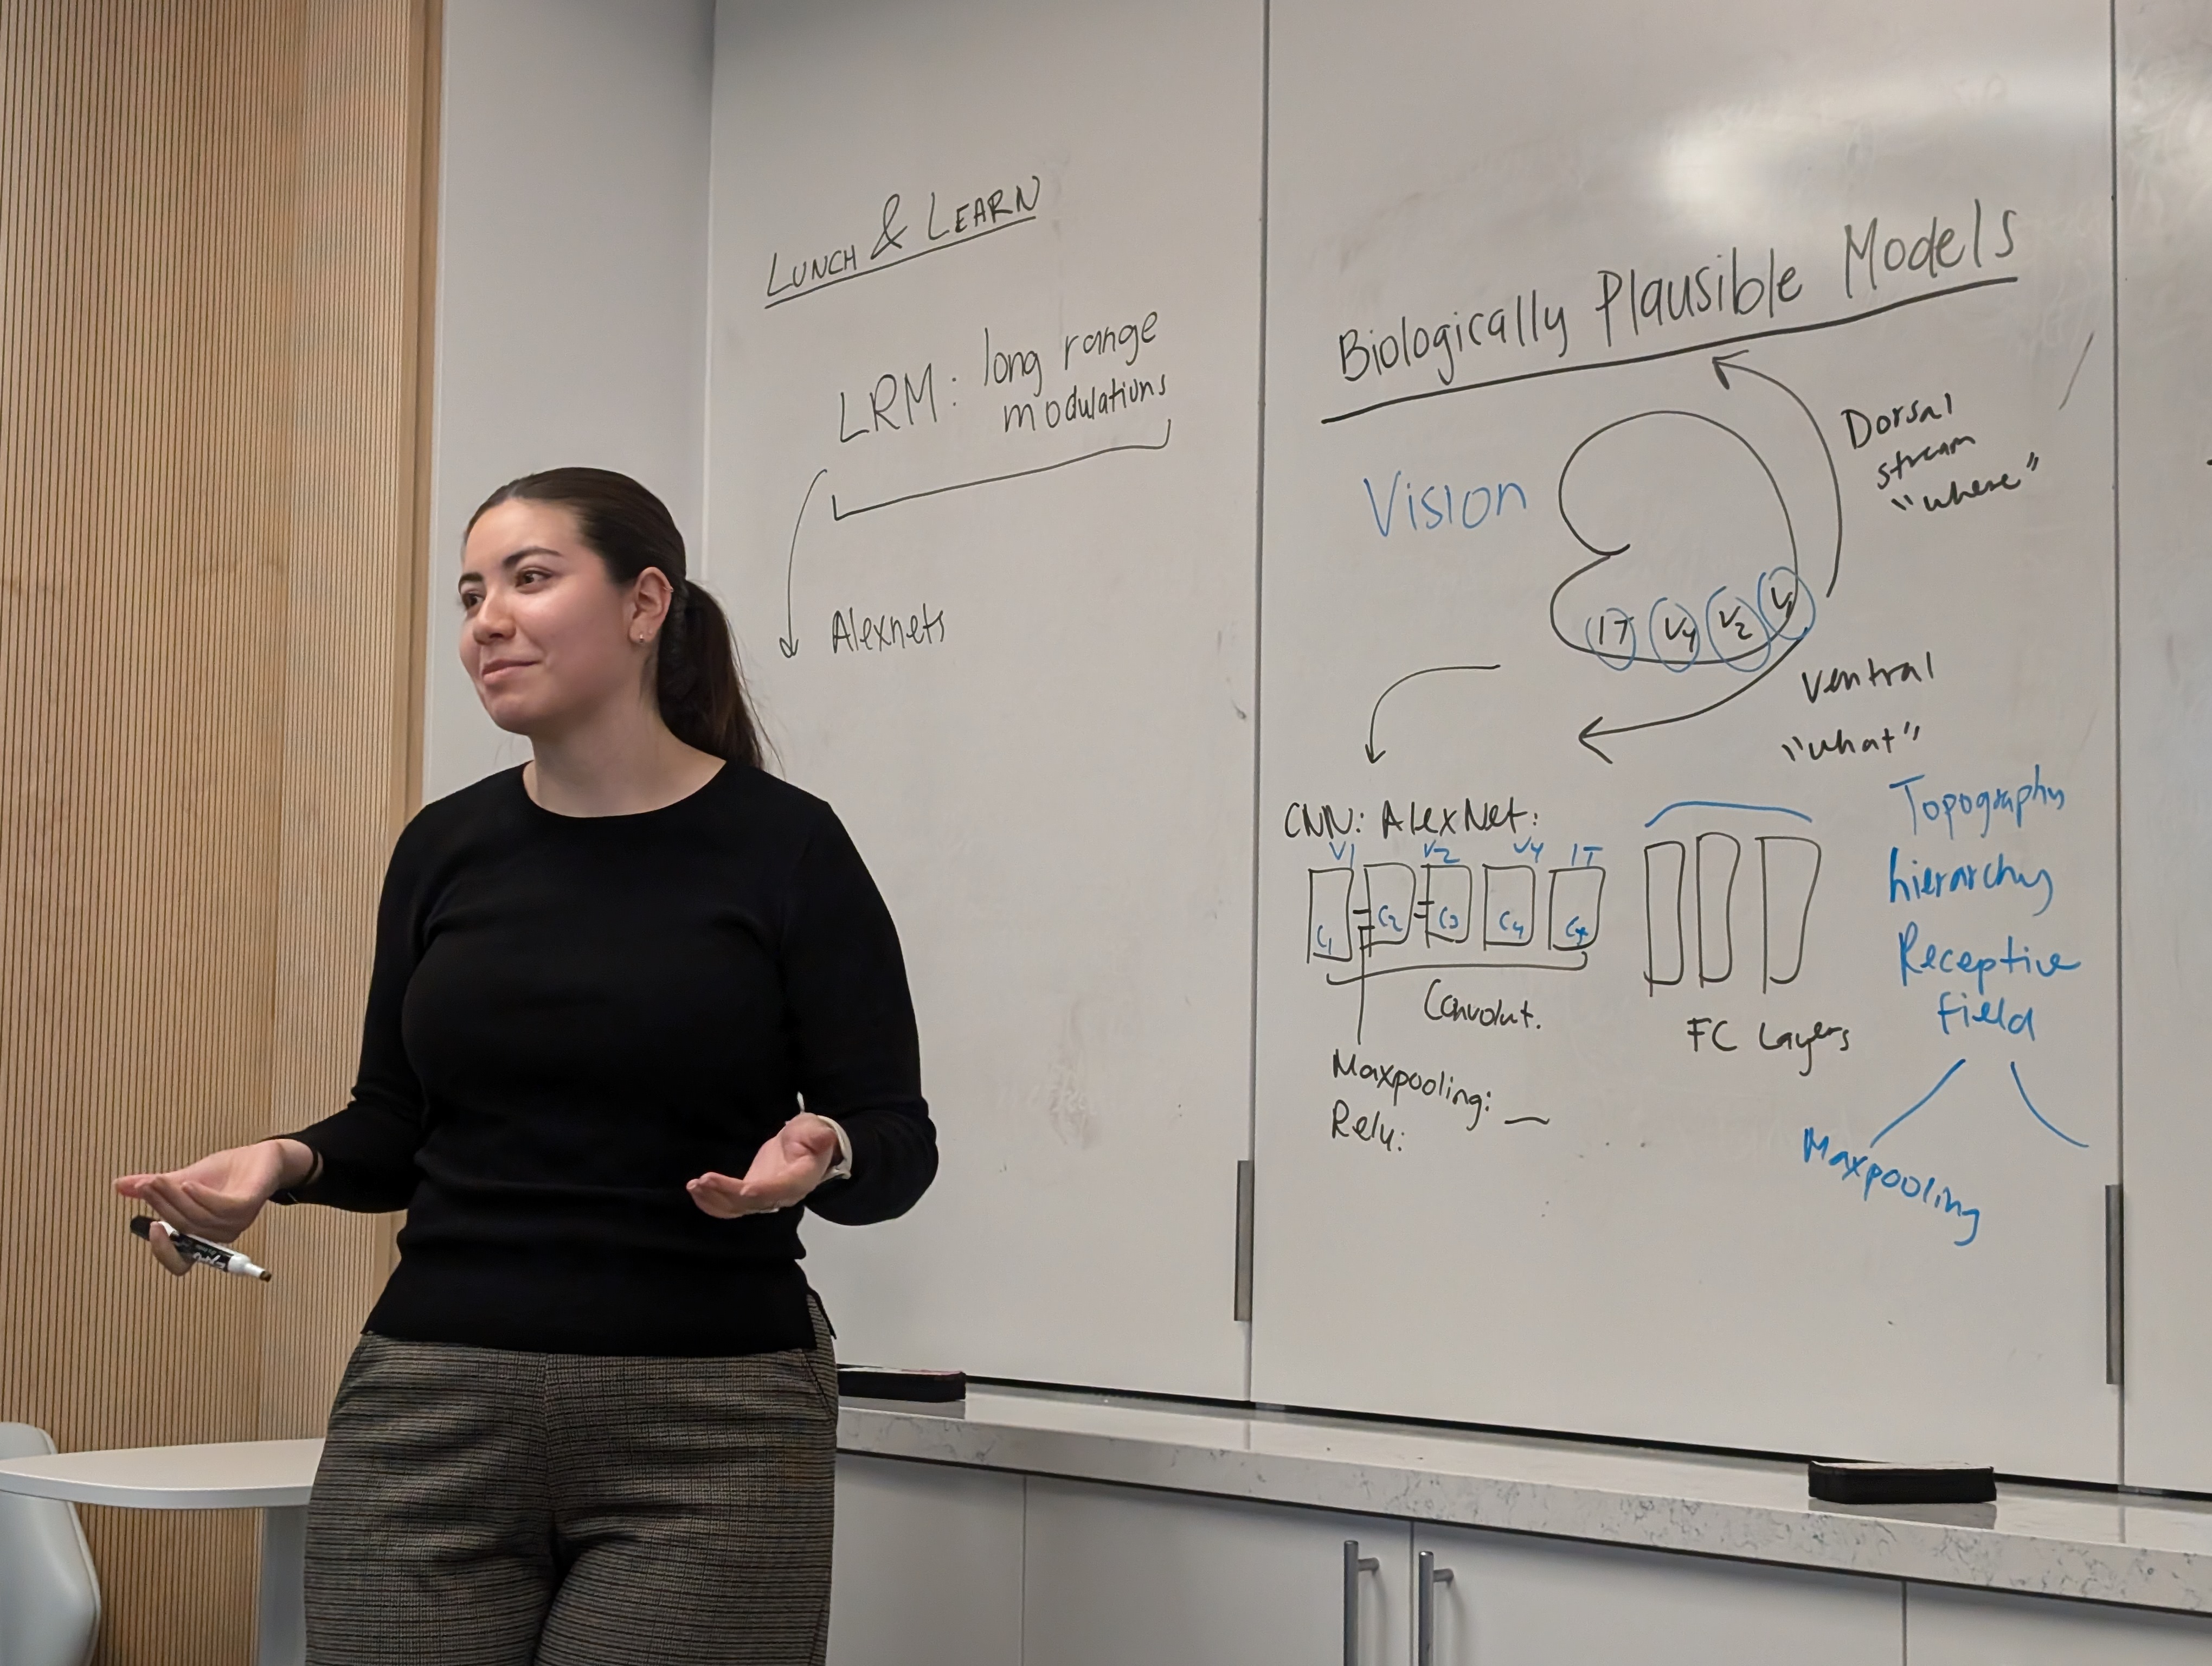 LUNCH & LEARN
LRM: long range
modulations
Alexnets
Biologically Plausible Models
Vision
Dorsal
stream
"where"
IT V4 V2 V1
Ventral
"what"
CNN: AlexNet:
V1 V2 V4 IT
C1 C2 C3 C4
Convolut.
FC Layers
Maxpooling:
Relu:
Topography
hierarchy
Receptive
field
Maxpooling